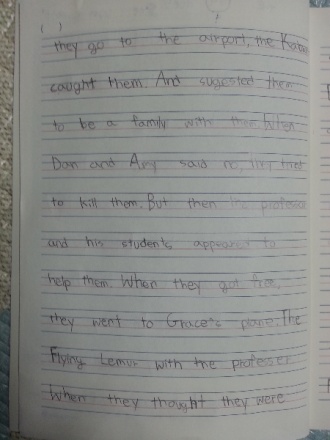 they go to the airport, the Kabra
caught them. And sugested them
to be a family with them. When
Dan and Amy said no, they tried
to kill them. But then the professor
and his students appeared to
help them. When they got free,
they went to Grace's plane. The
Flying Lemur with the professer.
When they thought they were